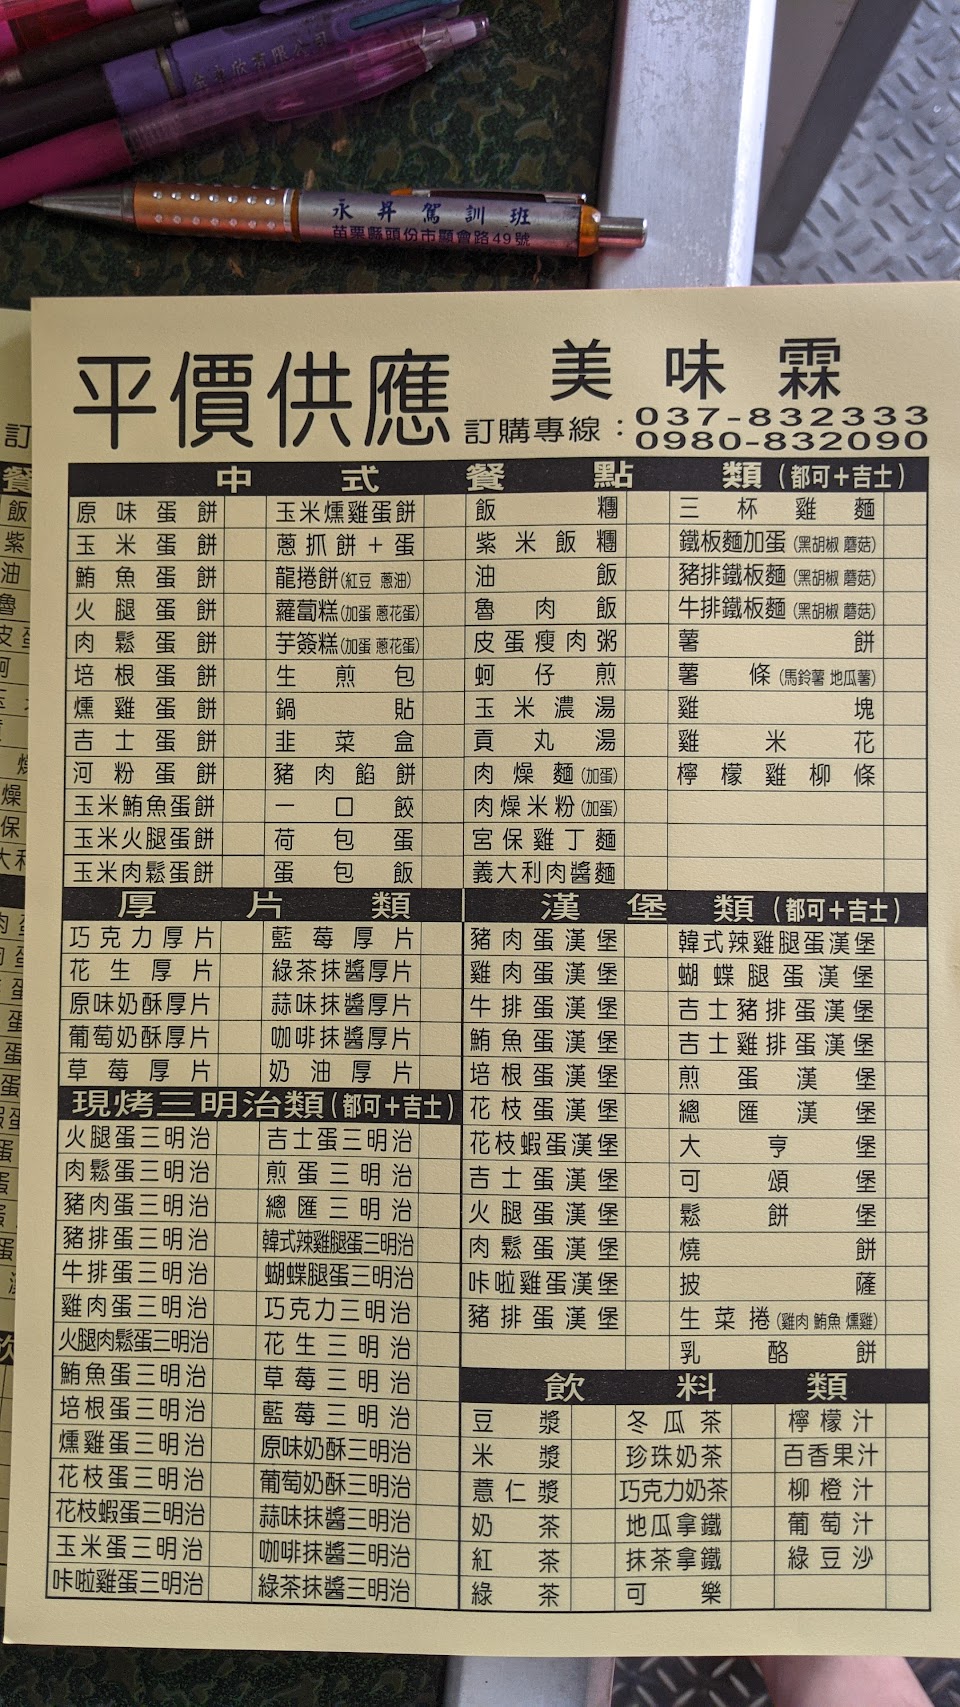 金永欣有限公司
永昇駕訓班
苗栗縣頭份市顯會路49號
平價供應
美味霖
訂購專線：037-832333
0980-832090
中式餐點類（都可+吉士）
原味蛋餅 玉米燻雞蛋餅 飯糰 三杯雞麵
玉米蛋餅 蔥抓餅+蛋 紫米飯糰 鐵板麵加蛋(黑胡椒 蘑菇)
鮪魚蛋餅 龍捲餅(紅豆 蔥油) 油飯 豬排鐵板麵(黑胡椒 蘑菇)
火腿蛋餅 蘿蔔糕(加蛋 蔥花蛋) 魯肉飯 牛排鐵板麵(黑胡椒 蘑菇)
肉鬆蛋餅 芋簽糕(加蛋 蔥花蛋) 皮蛋瘦肉粥 薯餅
培根蛋餅 生煎包 蚵仔煎 薯條(馬鈴薯 地瓜薯)
燻雞蛋餅 鍋貼 玉米濃湯 雞塊
吉士蛋餅 韭菜盒 貢丸湯 雞米花
河粉蛋餅 豬肉餡餅 肉燥麵(加蛋) 檸檬雞柳條
玉米鮪魚蛋餅 一口餃 肉燥米粉(加蛋)
玉米火腿蛋餅 荷包蛋 宮保雞丁麵
玉米肉鬆蛋餅 蛋包飯 義大利肉醬麵
厚片類
巧克力厚片 藍莓厚片
花生厚片 綠茶抹醬厚片
原味奶酥厚片 蒜味抹醬厚片
葡萄奶酥厚片 咖啡抹醬厚片
草莓厚片 奶油厚片
現烤三明治類（都可+吉士）
火腿蛋三明治 吉士蛋三明治
肉鬆蛋三明治 煎蛋三明治
豬肉蛋三明治 總匯三明治
豬排蛋三明治 韓式辣雞腿蛋三明治
牛排蛋三明治 蝴蝶腿蛋三明治
雞肉蛋三明治 巧克力三明治
火腿肉鬆蛋三明治 花生三明治
鮪魚蛋三明治 草莓三明治
培根蛋三明治 藍莓三明治
燻雞蛋三明治 原味奶酥三明治
花枝蛋三明治 葡萄奶酥三明治
花枝蝦蛋三明治 蒜味抹醬三明治
玉米蛋三明治 咖啡抹醬三明治
咔啦雞蛋三明治 綠茶抹醬三明治
漢堡類（都可+吉士）
豬肉蛋漢堡 韓式辣雞腿蛋漢堡
雞肉蛋漢堡 蝴蝶腿蛋漢堡
牛排蛋漢堡 吉士豬排蛋漢堡
鮪魚蛋漢堡 吉士雞排蛋漢堡
培根蛋漢堡 煎蛋漢堡
花枝蛋漢堡 總匯漢堡
花枝蝦蛋漢堡 大亨堡
吉士蛋漢堡 可頌堡
火腿蛋漢堡 鬆餅堡
肉鬆蛋漢堡 燒餅
咔啦雞蛋漢堡 披薩
豬排蛋漢堡 生菜捲(雞肉 鮪魚 燻雞)
乳酪餅
飲料類
豆漿 冬瓜茶 檸檬汁
米漿 珍珠奶茶 百香果汁
薏仁漿 巧克力奶茶 柳橙汁
奶茶 地瓜拿鐵 葡萄汁
紅茶 抹茶拿鐵 綠豆沙
綠茶 可樂